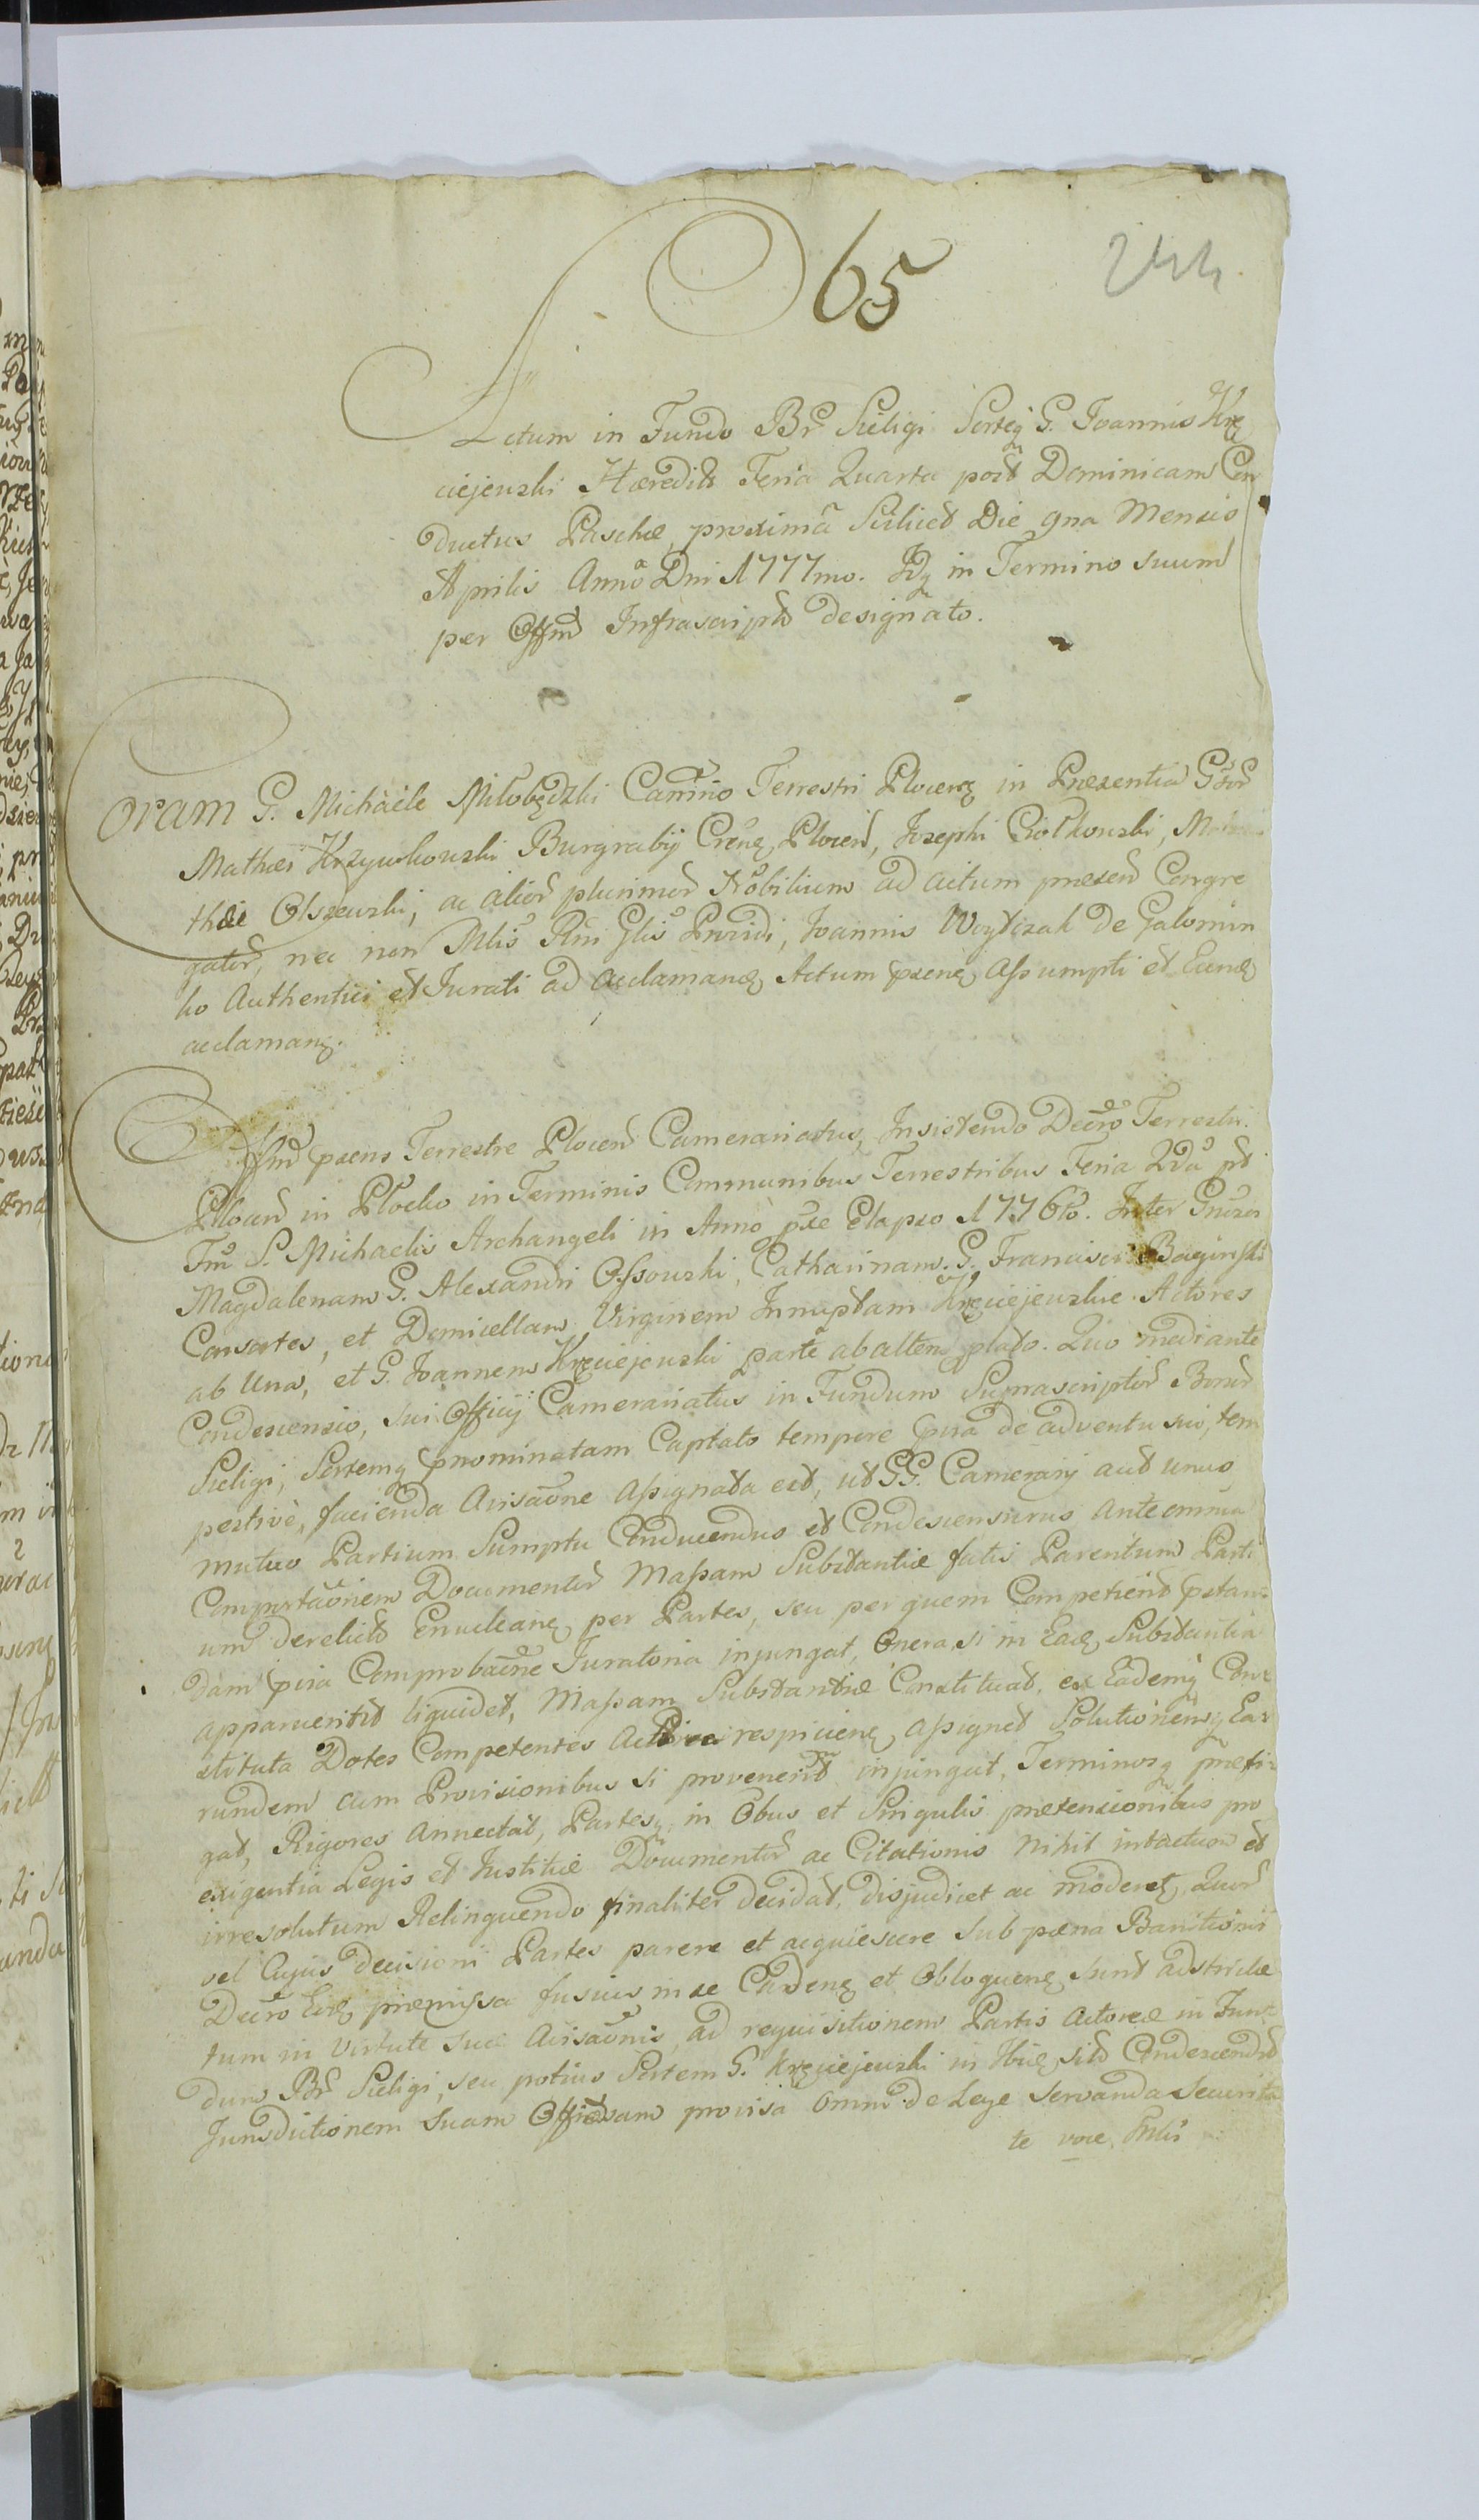 65
Actum in Fundo Br̃ Sieligi Sortisq̃ G. Joannis Krę
ciejewski Hæredits Feria Quarta post Dominicam Con
ductus Paschæ proximã Scilicet Die 9na Mensis
Aprilis Annõ Dni 1777mo. Idq̃ in Termino suum
per Offm̃ Infrascriptũ designato.
Coram G. Michaële Miłobędzki Camr̃io Terrestri Plocenș in Præsentia Gsor̃
Mathæi Krzywkowski Burgrabij Crẽnș Plocen̄, Josephi Ciołkowski,
thæi Olszewski, ac alior̃ plurimor̃ Nobilium ad actum præsen̄ Congre
gator̃, nec non Mlis Rni Glis Prvidi, Joannis Woytczak de Galomin
ko Authentici et Jurati ad acclamanș Actum psenș Assumpti et Eunș
acclamanș.
Offm̄ psens Terrestre Plocen̄ Camerariatus, Insistendo Decr̃o Terrestri
Plocen̄ in Płocko in Terminis Communibus Terrestribus Feria 2dã pt
Fm̃ S. Michaelis Archangeli in Annò pte Elapso 1776to. Inter Gnẽsos
Magdalenam G. Alexandri Ossowski, Catharinam G. Francisci Baginski
Consortes, et Domicellam Virginem Innuptam Kręciejewskie Actores
ab Una, et G. Joannem Kręciejewski parte ab altera plato. Quo mediante
Condescensio, sui Officij Camerariatus in Fundum Supprascriptor̃ Bonor̃
Sieligi, Sortemq̃ pnominatam Captato tempore pvia de adventu sui, tem
pestivè, facienda Avisaõne Assignata est, ut GG. Camerarij aut unus
mutuo Partium Sumptu Conducendus et Condescensurus ante omnia
Comportaõnem Documentor̃ Massam Substantiæ fatis Parentum Parti
um derelictã Enucleanș per Partes, seu per quem Competierit pstan
dam pvia Comprobaõne Juratoria injungat, Onera, si in Eadș Substantia
apparuerint liquidet, Massam Substantiæ Constituat, ex Eademq̃ Con
stituta Dotes Competentes respicienș assignet Solutionemq̃ Ea
rundem cum Provisionibus si provenerint injungat, Terminosq̃ præfi
gat, Rigores annectat, Partesq̃ in Obus et Singulis prætensionibus pro
exigentia Legis et Justitiæ Documentor̃ ac Citationis nihil intactum et
irresolutum Relinquendo finaliter decidat, disjudicet ac moderetș, Quor̃
vel Cujus decisioni Partes parere et acquiescere sub pœna Banitionis
Decr̃o Eoș præmissa fusius in se Cadenș et Obloquenș Sunt adstrictæ
tum in virtute suæ Avisaõnis, ad requisitionem Partis Actoreæ in Fun
dum Br̃ Sieligi, seu potius Sortem G. Kręciejewski in Ibiș sitã Condescendit
Jurisdictionem suam Offisam provisa Omni de Lege servanda Securita
te voce Mlis